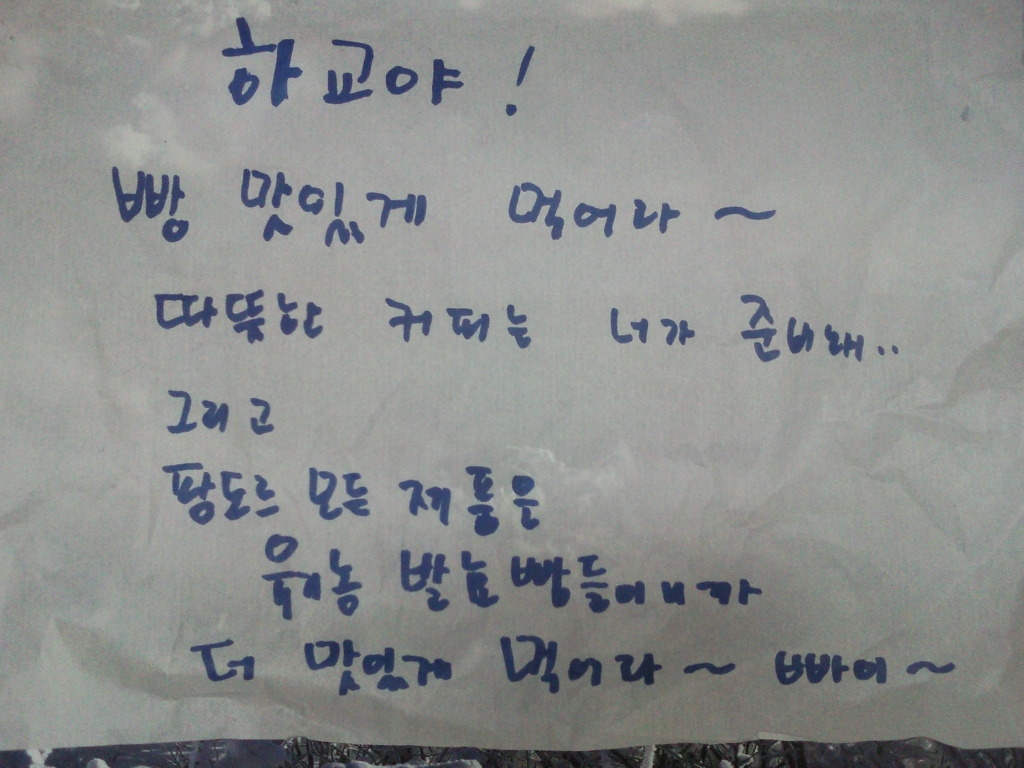 하교야!
빵 맛있게 먹어라~
따뜻한 커피는 너가 준비해..
그리고
팡도르 모든 제품은
유기농 발효빵들이니까
더 맛있게 먹어라~ 빠이~